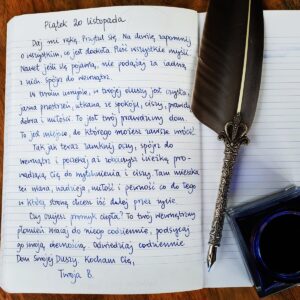 Piątek 20 listopada
Daj mi rękę. Przytul się. Na chwilę zapomnij
o wszystkim, co jest dookoła. Puść wszystkie myśli.
Nawet jeśli się pojawią, nie podążaj za żadną
z nich. Spójrz do wewnątrz.
W Twoim umyśle, w Twojej duszy jest czysta,
jasna przestrzeń, utkana ze spokoju, ciszy, prawdy,
dobra i miłości. To jest Twój prawdziwy dom.
To jest miejsce, do którego możesz zawsze wrócić.
Tak jak teraz zamknij oczy, spójrz do
wewnątrz i poczekaj aż zobaczysz ścieżkę pro-
wadzącą Cię do wytchnienia i ciszy. Tam mieszka
też wiara, nadzieja, miłość i pewność co do tego
w którą stronę chcesz iść dalej przez życie.
Czy czujesz promyk ciepła? To Twój wewnętrzny
płomień. Wracaj do niego codziennie, podsycaj
go swoją obecnością. Odwiedzaj codziennie
Dom Swojej Duszy. Kocham Cię,
Twoja B.